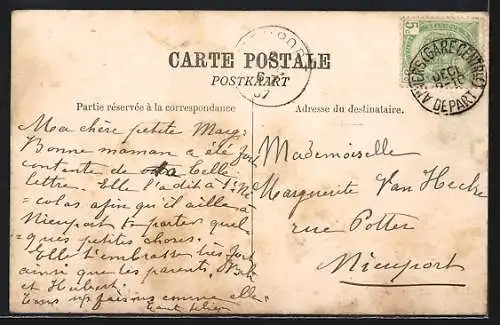 CARTE POSTALE
POSTKAART
Partie réservée à la correspondance
Adresse du destinataire.
ANVERS (GARE CENTRALE)
DEPART
5
Ma chère petite Marg:
Bonne maman a été fort
contente de ta belle
lettre. Elle l'a dit à St Ni
colas afin qu'il aille à
Nieuport te porter quel
ques petites choses.
Elle t'embrasse très fort
ainsi que tes parents,
et Hubert.
Nous en faisons comme elle
Mademoiselle
Marguerite Van Hecke
rue Potter
Nieuport